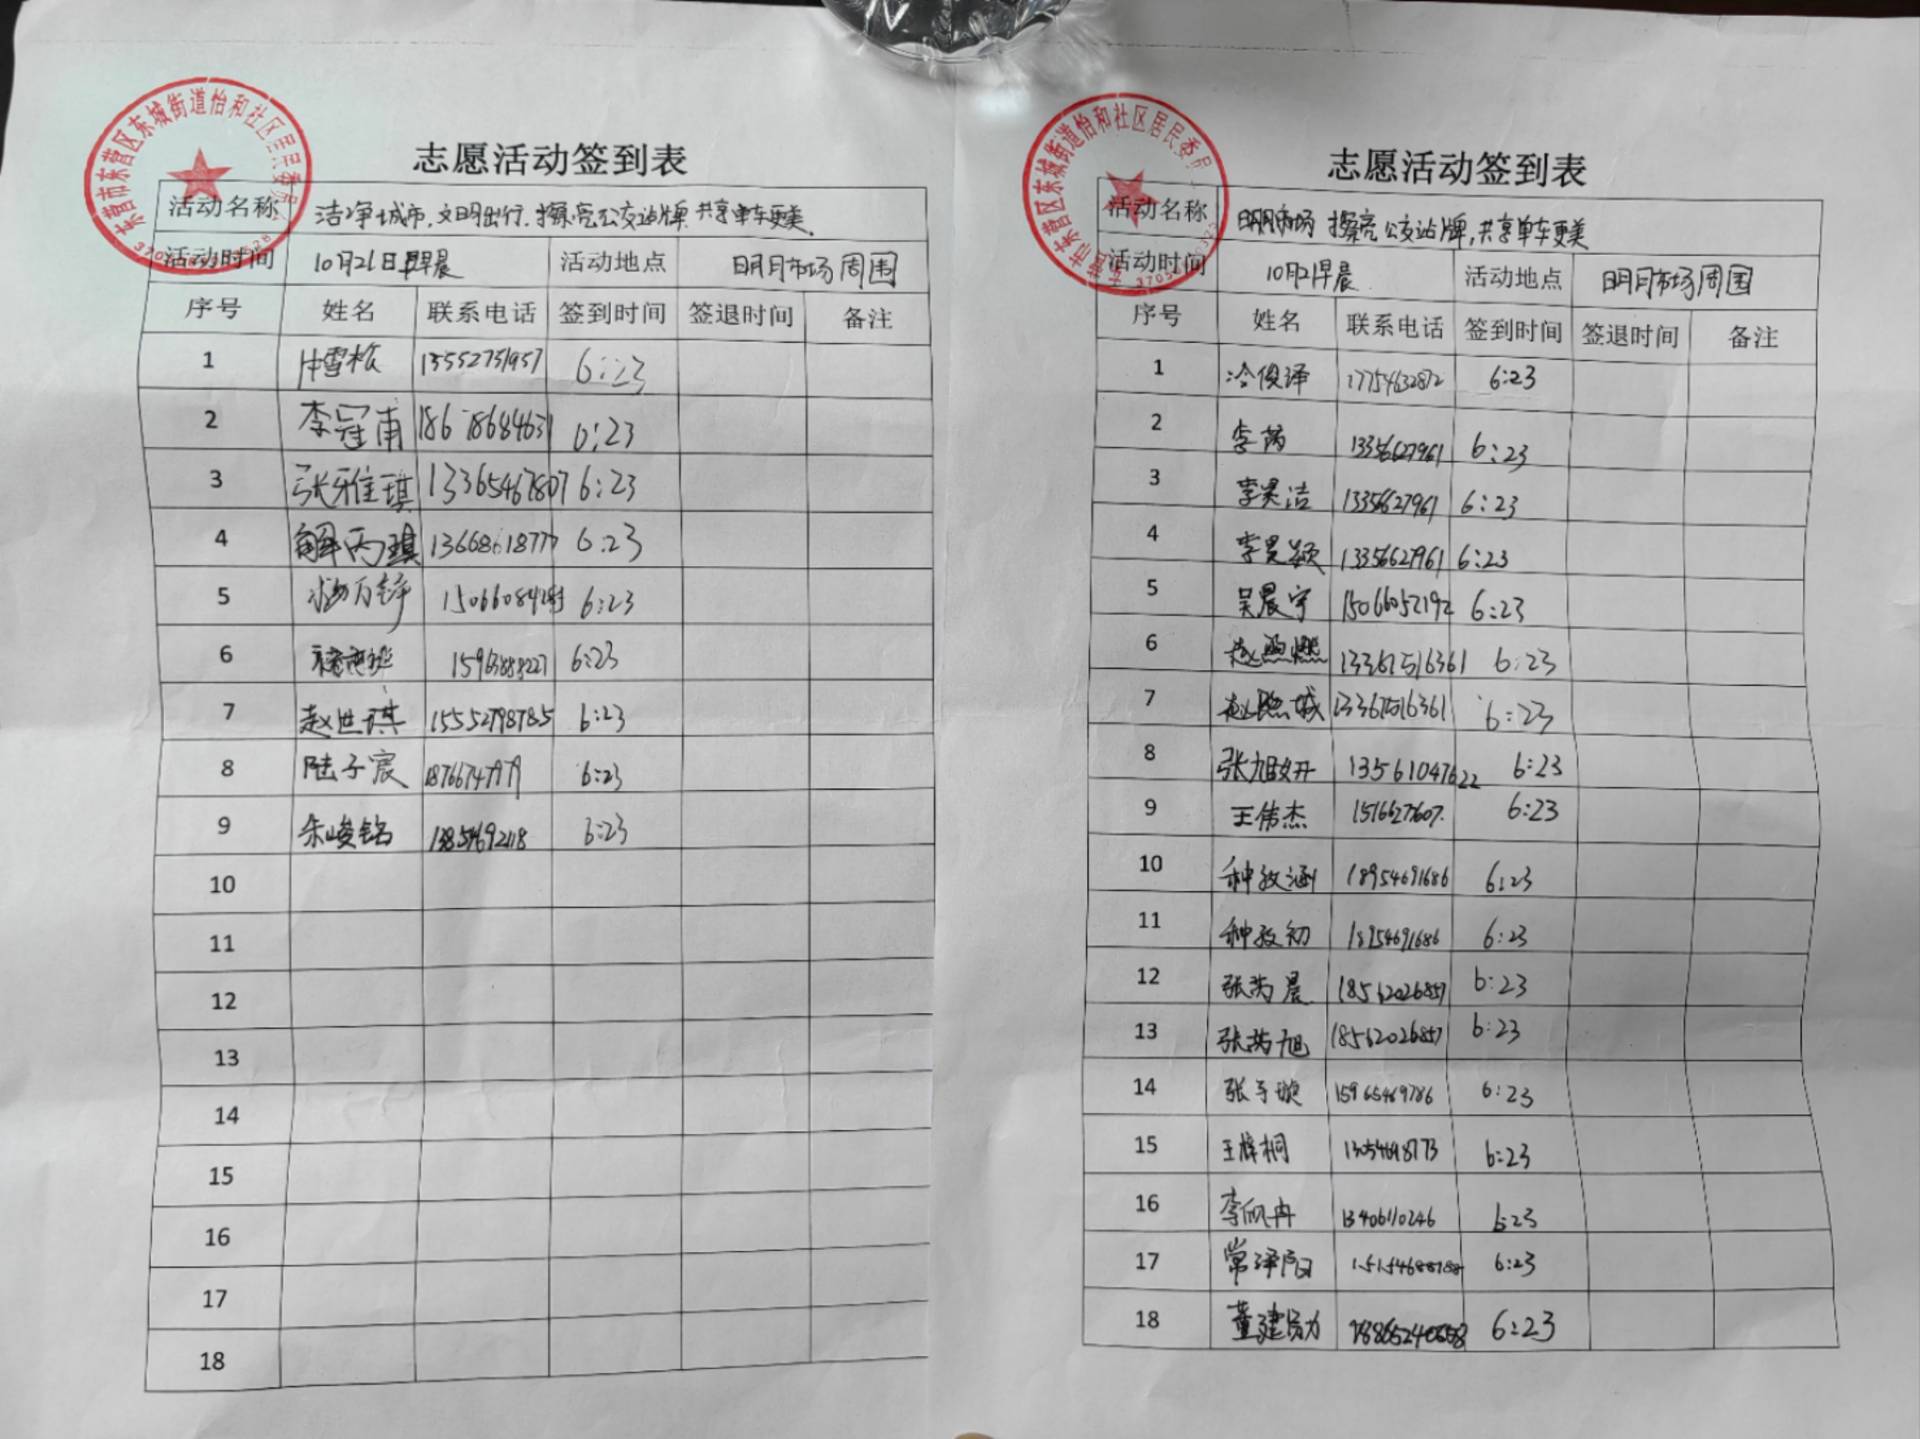 东营市东营区东城街道怡和社区居民委员
志愿活动签到表
活动名称 洁净城市,文明出行,擦亮公交站牌 共享单车更美
活动时间 10月21日早晨 活动地点 明月市场周围
序号 姓名 联系电话 签到时间 签退时间 备注
1 13552751957 6:23
2 李冠甫 6:23
3 张雅琪 13365467807 6:23
4 解丙琪 6:23
5 6:23
6 6:23
7 赵世琪 15552798785 6:23
8 陆子宸 6:23
9 朱峻铭 6:23
10
11
12
13
14
15
16
17
18
东营市东营区东城街道怡和社区居民委员
志愿活动签到表
活动名称 明月市场 擦亮公交站牌,共享单车更美
活动时间 10月21早晨 活动地点 明月市场周围
序号 姓名 联系电话 签到时间 签退时间 备注
1 冷俊译 17754632872 6:23
2 李 13356627961 6:23
3 李昊洁 13356627961 6:23
4 李昊颖 13356627961 6:23
5 吴晨宇 15066052192 6:23
6 赵熙燃 6:23
7 赵熙城 6:23
8 张旭妍 13561047622 6:23
9 王伟杰 1516627607 6:23
10 种孜涵 18954691686 6:23
11 种孜初 18954691686 6:23
12 张芮晨 18562026857 6:23
13 张芮旭 18562026857 6:23
14 张子璇 15965469786 6:23
15 王梓桐 13054698773 6:23
16 李 13406110246 6:23
17 常泽阳 6:23
18 董建勋 6:23